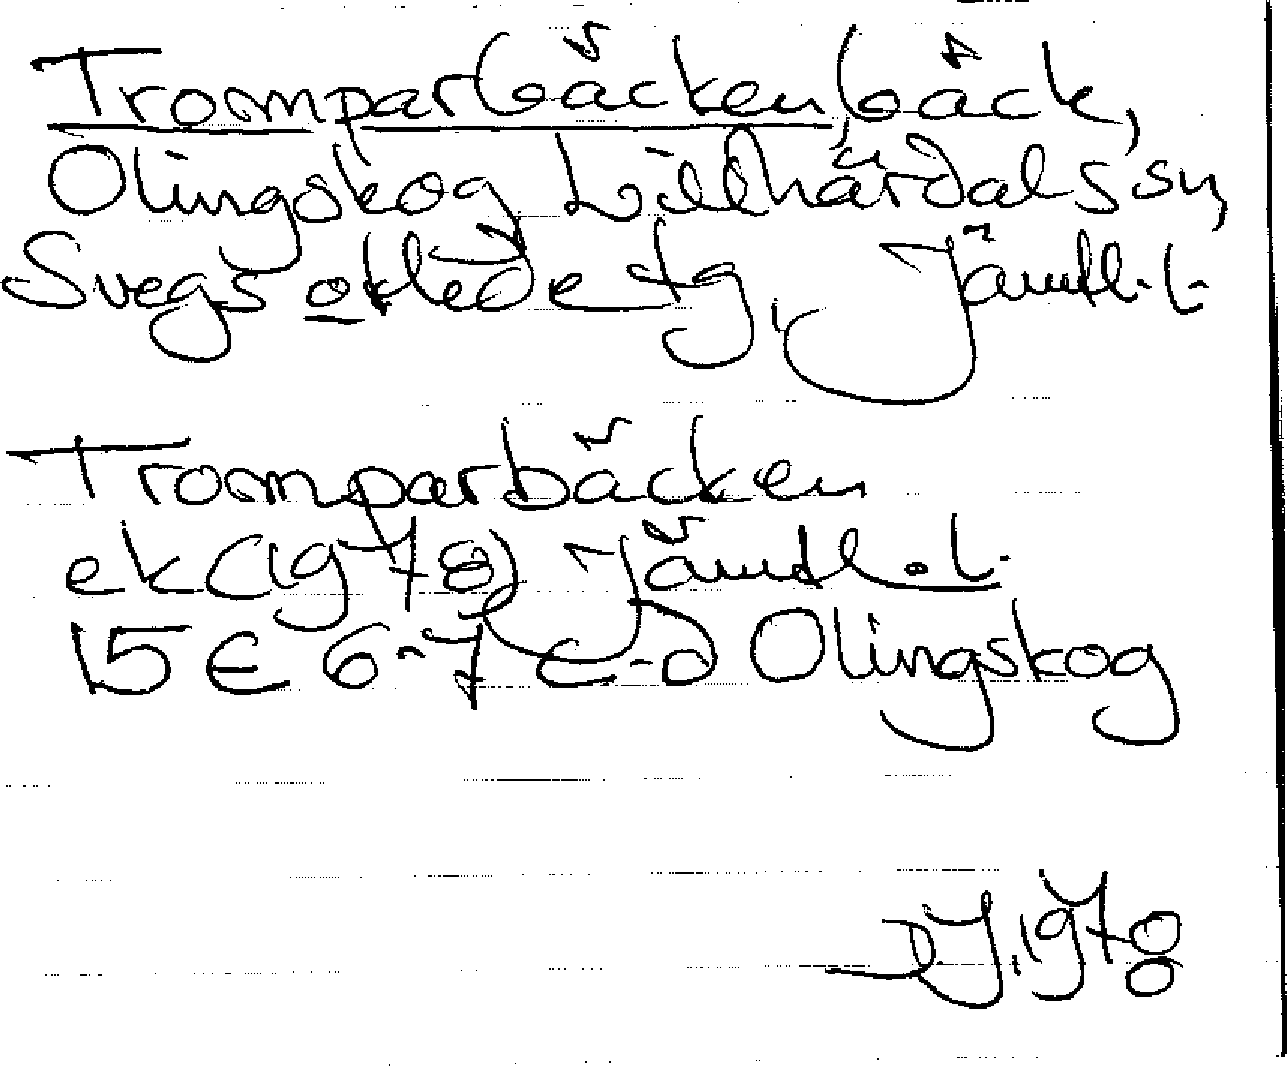 Tromparbäcken, bäck,
Olingskog Lillhärdals sn,
Svegs oklede tg, Jämtl. l.
Tromparbäcken
ek (1978) Jämtl. l.
15 E 6-7 c-d Olingskog
DJ. 1978